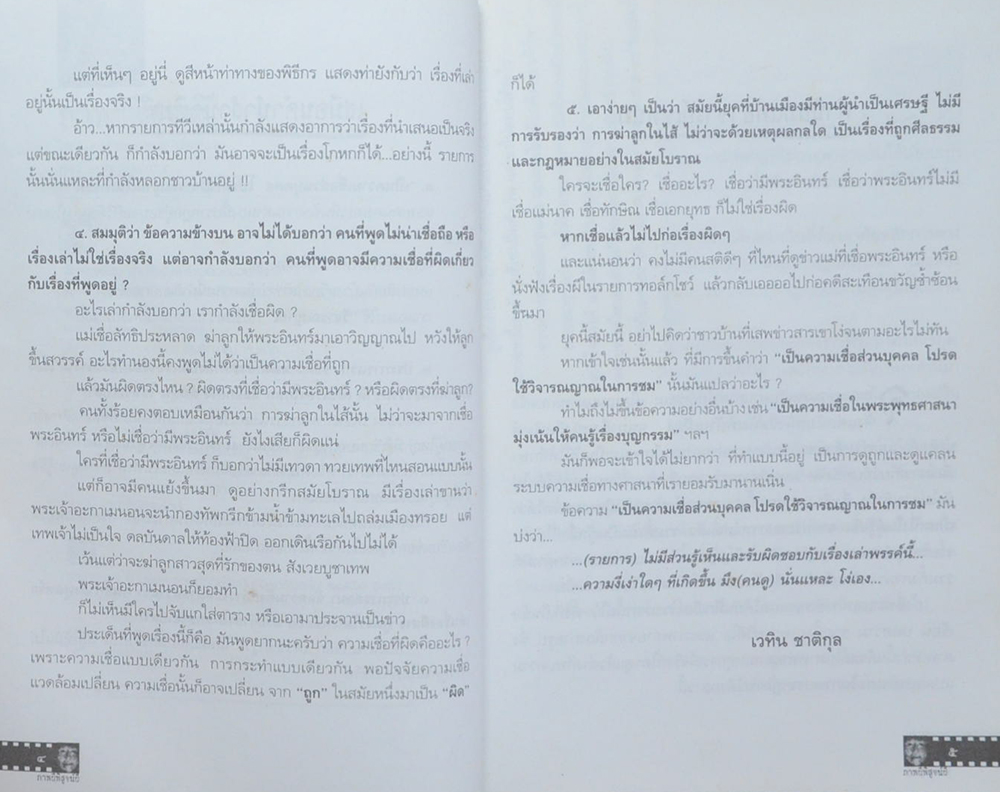 แต่ที่เห็นๆ อยู่นี่ ดูสีหน้าท่าทางของพิธีกร แสดงท่ายังกับว่า เรื่องที่เล่า
อยู่นั้นเป็นเรื่องจริง !
อ้าว...หากรายการทีวีเหล่านั้นกำลังแสดงอาการว่าเรื่องที่นำเสนอเป็นจริง
แต่ขณะเดียวกัน ก็กำลังบอกว่า มันอาจจะเป็นเรื่องโกหกก็ได้...อย่างนี้ รายการ
นั้นนั่นแหละที่กำลังหลอกชาวบ้านอยู่ !!
๔. สมมุติว่า ข้อความข้างบน อาจไม่ได้บอกว่า คนที่พูดไม่น่าเชื่อถือ หรือ
เรื่องเล่าไม่ใช่เรื่องจริง แต่อาจกำลังบอกว่า คนที่พูดอาจมีความเชื่อที่ผิดเกี่ยว
กับเรื่องที่พูดอยู่ ?
อะไรเล่ากำลังบอกว่า เรากำลังเชื่อผิด ?
แม่เชื่อลัทธิประหลาด ฆ่าลูกให้พระอินทร์มาเอาวิญญาณไป หวังให้ลูก
ขึ้นสวรรค์ อะไรทำนองนี้คงพูดไม่ได้ว่าเป็นความเชื่อที่ถูก
แล้วมันผิดตรงไหน ? ผิดตรงที่เชื่อว่ามีพระอินทร์ ? หรือผิดตรงที่ฆ่าลูก?
คนทั้งร้อยคงตอบเหมือนกันว่า การฆ่าลูกในไส้นั้น ไม่ว่าจะมาจากเชื่อ
พระอินทร์ หรือไม่เชื่อว่ามีพระอินทร์ ยังไงเสียก็ผิดแน่
ใครที่เชื่อว่ามีพระอินทร์ ก็บอกว่าไม่มีเทวดา ทวยเทพที่ไหนสอนแบบนั้น
แต่ก็อาจมีคนแย้งขึ้นมา ดูอย่างกรีกสมัยโบราณ มีเรื่องเล่าขานว่า
พระเจ้าอะกาเมนอนจะนำกองทัพกรีกข้ามน้ำข้ามทะเลไปถล่มเมืองทรอย แต่
เทพเจ้าไม่เป็นใจ ดลบันดาลให้ท้องฟ้าปิด ออกเดินเรือกันไปไม่ได้
เว้นแต่ว่าจะฆ่าลูกสาวสุดที่รักของตน สังเวยบูชาเทพ
พระเจ้าอะกาเมนอนก็ยอมทำ
ก็ไม่เห็นมีใครไปจับแกใส่ตาราง หรือเอามาประจานเป็นข่าว
ประเด็นที่พูดเรื่องนี้ก็คือ มันพูดยากนะครับว่า ความเชื่อที่ผิดคืออะไร ?
เพราะความเชื่อแบบเดียวกัน การกระทำแบบเดียวกัน พอปัจจัยความเชื่อ
แวดล้อมเปลี่ยน ความเชื่อนั้นก็อาจเปลี่ยน จาก “ถูก” ในสมัยหนึ่งมาเป็น “ผิด”
๔
ภาพวิพิสูจน์ผี
ก็ได้
๕. เอาง่ายๆ เป็นว่า สมัยนี้ยุคที่บ้านเมืองมีท่านผู้นำเป็นเศรษฐี ไม่มี
การรับรองว่า การฆ่าลูกในไส้ ไม่ว่าจะด้วยเหตุผลกลใด เป็นเรื่องที่ถูกศีลธรรม
และกฎหมายอย่างในสมัยโบราณ
ใครจะเชื่อใคร? เชื่ออะไร? เชื่อว่ามีพระอินทร์ เชื่อว่าพระอินทร์ไม่มี
เชื่อแม่นาค เชื่อทักษิณ เชื่อเอกยุทธ ก็ไม่ใช่เรื่องผิด
หากเชื่อแล้วไม่ไปก่อเรื่องผิดๆ
และแน่นอนว่า คงไม่มีคนสติดีๆ ที่ไหนที่ดูข่าวแม่ที่เชื่อพระอินทร์ หรือ
นั่งฟังเรื่องผีในรายการทอล์กโชว์ แล้วกลับเออออไปก่อคดีสะเทือนขวัญซ้ำซ้อน
ขึ้นมา
ยุคนี้สมัยนี้ อย่าไปคิดว่าชาวบ้านที่เสพข่าวสารเขาโง่จนตามอะไรไม่ทัน
หากเข้าใจเช่นนั้นแล้ว ที่มีการขึ้นคำว่า “เป็นความเชื่อส่วนบุคคล โปรด
ใช้วิจารณญาณในการชม” นั้นมันแปลว่าอะไร ?
ทำไมถึงไม่ขึ้นข้อความอย่างอื่นบ้าง เช่น “เป็นความเชื่อในพระพุทธศาสนา
มุ่งเน้นให้คนรู้เรื่องบุญกรรม” ฯลฯ
มันก็พอจะเข้าใจได้ไม่ยากว่า ที่ทำแบบนี้อยู่ เป็นการดูถูกและดูแคลน
ระบบความเชื่อทางศาสนาที่เรายอมรับมานานเนิ่น
ข้อความ “เป็นความเชื่อส่วนบุคคล โปรดใช้วิจารณญาณในการชม” มัน
บ่งว่า...
...(รายการ) ไม่มีส่วนรู้เห็นและรับผิดชอบกับเรื่องเล่าพรรค์นี้...
...ความงี่เง่าใดๆ ที่เกิดขึ้น มึง(คนดู) นั่นแหละ โง่เอง...
เวทิน ชาติกุล
๕